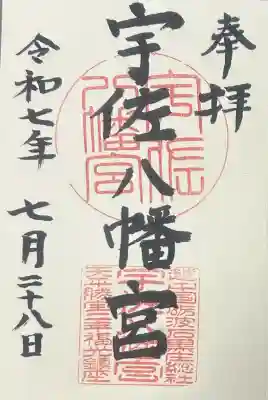 奉拝
宇佐八幡宮
令和七年 七月二十八日
宇佐八幡宮